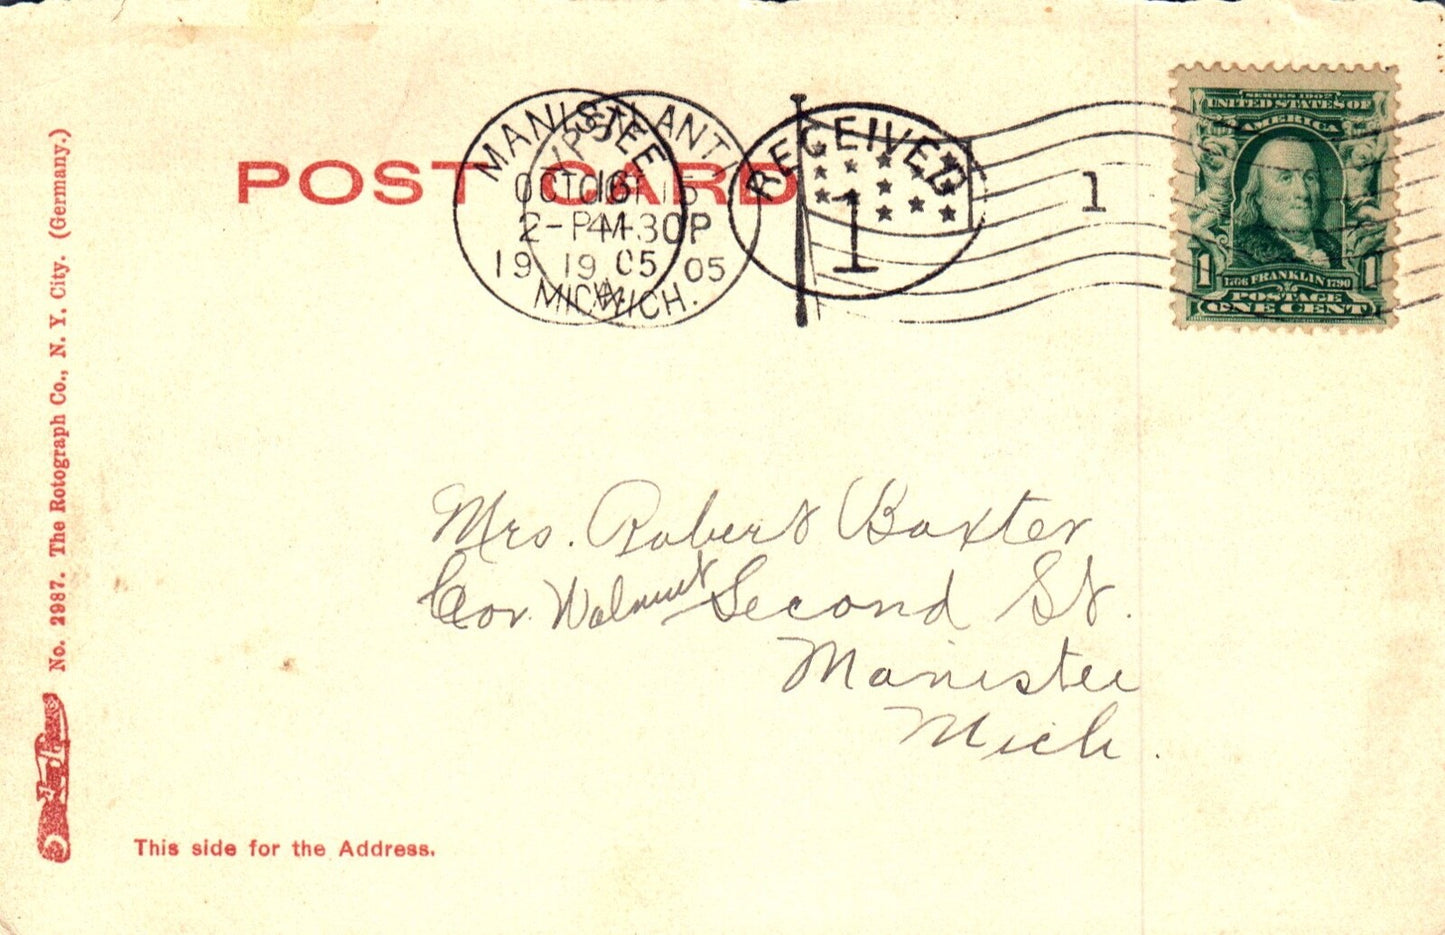 POST CARD
MANISTEE
OCT 16
2-PM
1905
MICH.
YPSILANTI
OCT 15
4-30P
1905
MICH.
RECEIVED
1
1
SERIES 1902
UNITED STATES OF
AMERICA
1 1
1706 FRANKLIN 1790
POSTAGE
ONE CENT
No. 2987. The Rotograph Co., N. Y. City. (Germany.)
Mrs. Robert Baxter
Cor Walnut Second St.
Manistee
Mich.
This side for the Address.